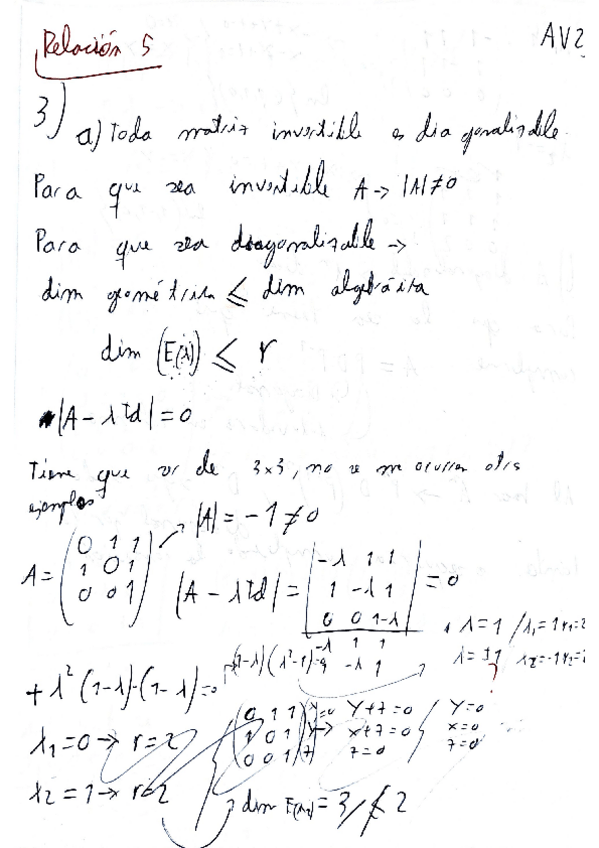 Relación 5
AV2
3) a) Toda matriz invertible es diagonalizable.
Para que sea invertible A → |A| ≠ 0
Para que sea diagonalizable →
dim geométrica ≤ dim algebráica
dim (E(λ)) ≤ r
|A - λId| = 0
Tiene que ser de 3x3, no se me ocurren otros
ejemplos
→ |A| = -1 ≠ 0
A = (0 1 1
1 0 1
0 0 1)
|A - λId| = |-λ 1 1
1 -λ 1
0 0 1-λ| = 0
λ = 1 / λ₁ = 1 r₁ = 2
(1-λ)(λ²-1) =
-λ 1 1
-λ 1
λ = ±1 λ₂ = -1 r₂ =
+ λ²(1-λ) - (1-λ) = 0
λ₁ = 0 → r = 2
(0 1 1
1 0 1
0 0 1)
y+z=0
x+z=0
z=0
y=0
x=0
z=0
λ₂ = 1 → r = 2
dim E(λ₂) = 3 ≰ 2